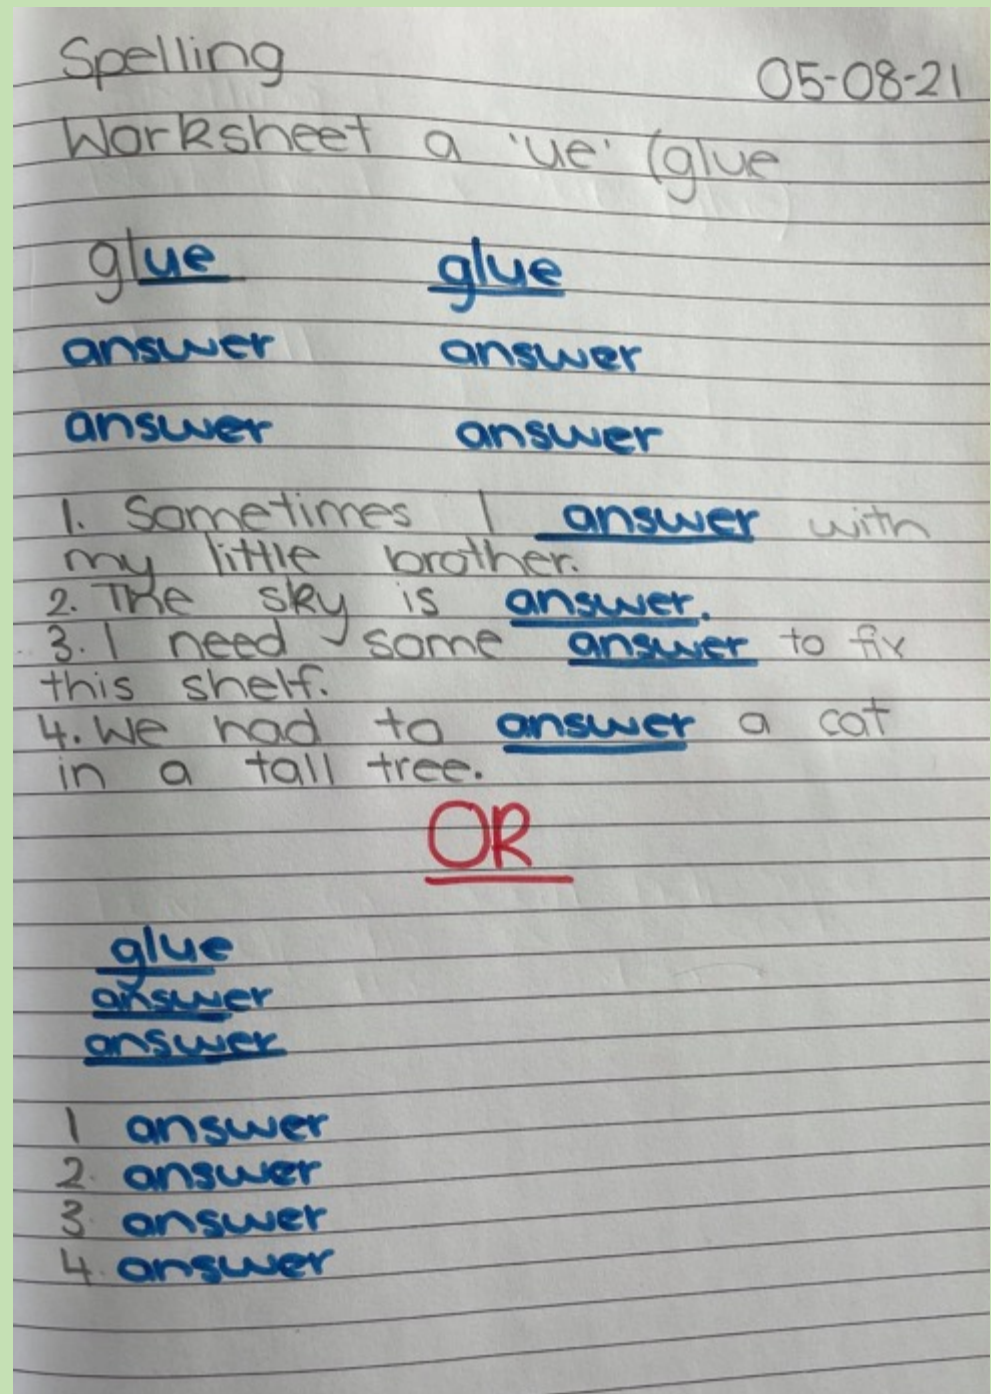 Spelling 05-08-21
Worksheet a 'ue' (glue
glue glue
answer answer
answer answer
1. Sometimes I answer with
my little brother.
2. The sky is answer.
3. I need some answer to fix
this shelf.
4. We had to answer a cat
in a tall tree.
OR
glue
answer
answer
1 answer
2. answer
3. answer
4. answer